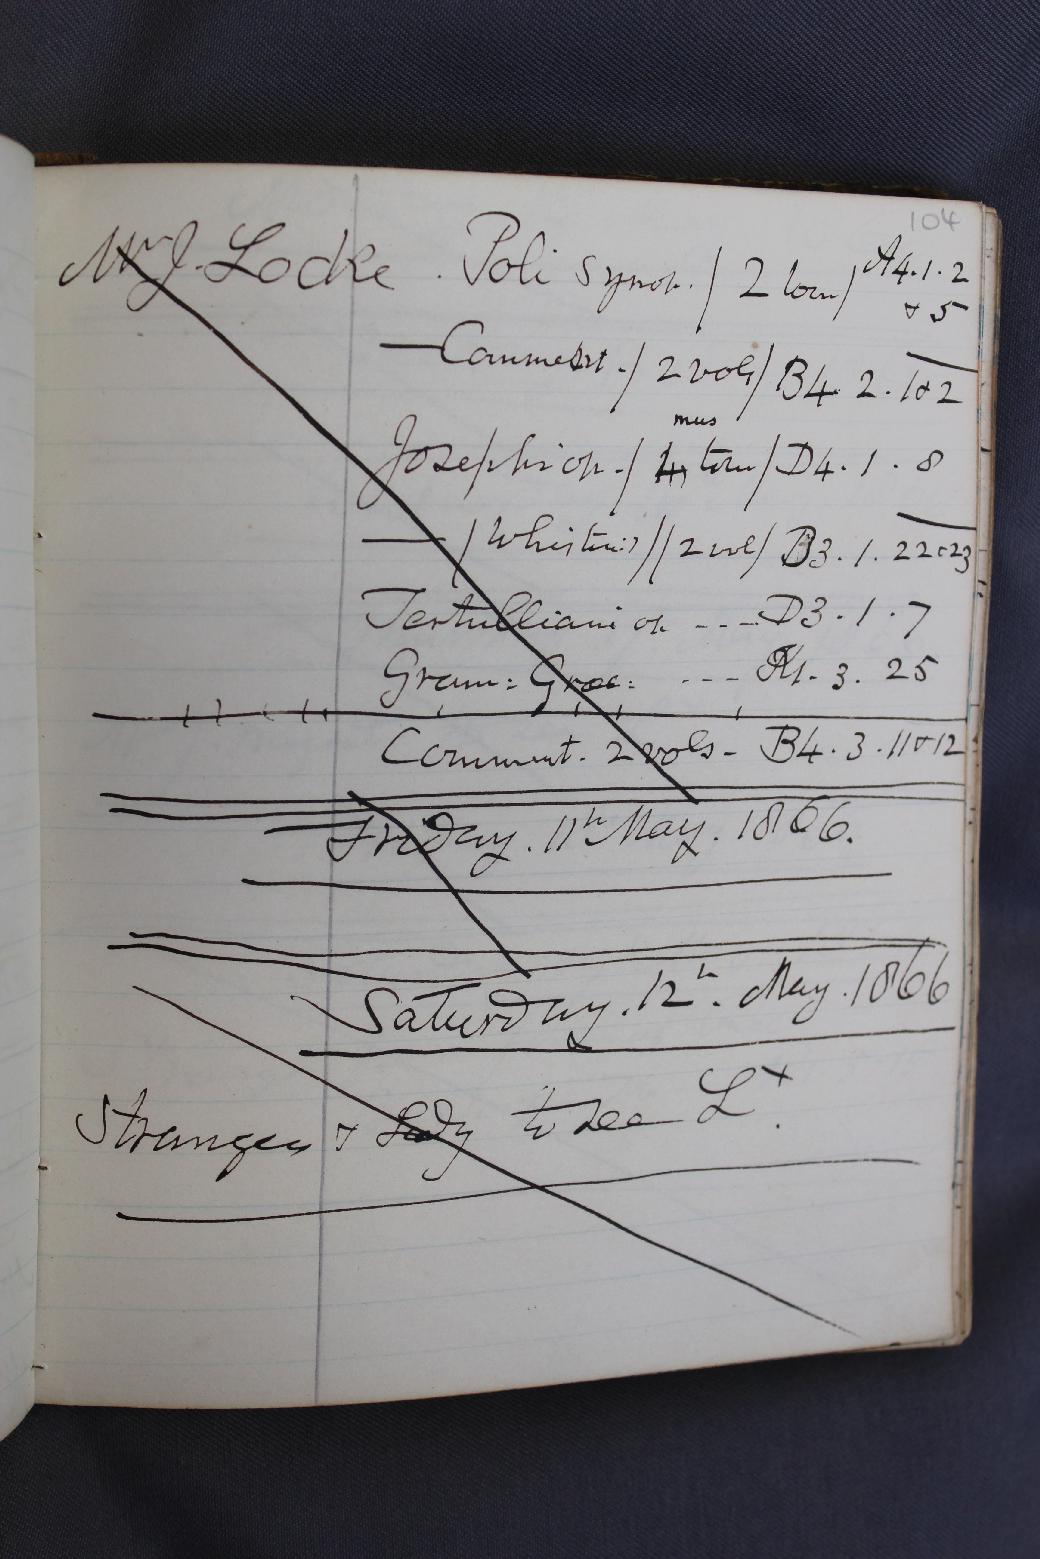 104
Mr J. Locke. Poli Synop. / 2 tom / A4.1.2
& 5
— Comment. / 2 vols / B4.2.1&2
mus
Josephi op. / tom / D4.1.8
— / Whiston's // 2 vol / B3.1.22&23
Tertulliani op. --- D3.1.7
Gram: Grae: --- 3.25
Comment. 2 vols - B4.3.11&12
Friday. 11th May. 1866.
Saturday. 12th. May. 1866
Stranger & Lady to see L x.